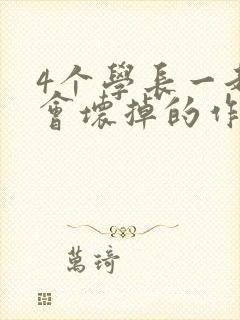 4个學長一
會壞掉的作
萬琦